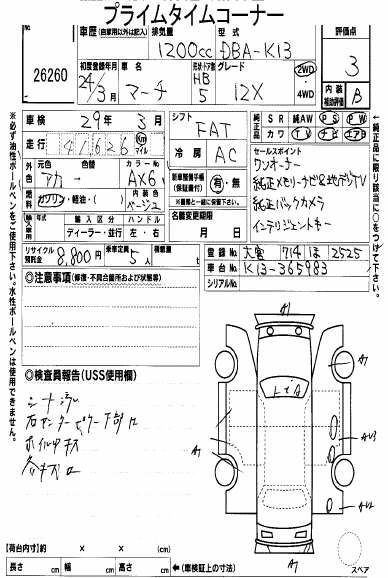 プライムタイムコーナー
26260
車歴 (自家用以外は記入) 排気量 1200cc 型式 DBA-K13 評価点 3
初度登録年月 24/3月 車名 マーチ 形状・ドア数 HB 5 グレード 12X 2WD ・ 4WD 内装補助評価 B
車検 29年 3月 シフト FAT 純正品 SR 純AW PS PW
カワ TV ナビ エアB
走行 41626 Km マイル 冷房 AC セールスポイント
ワンオーナー
元色 アカ 色替 カラーNo AX6 新車整備手帳(保証書付) 有・無 純正メモリーナビ&地デジTV
燃料 ガソリン・軽油・( ) 内装色 ベージュ ※書類と一緒に保管 純正バックカメラ
輸入車用 年式 年 輸入区分 ディーラー・並行 ハンドル 左・右 名義変更期限 月 日 インテリジェントキー
リサイクル預託金 8,800円 乗車定員 5人 積載量 登録No 大宮 714 ほ 2525
車台No K13-365983
シリアルNo
◎注意事項 (修復・不具合箇所および状態等)
◎検査員報告 (USS使用欄)
ホイルキズ
※必ず油性ボールペンをご使用下さい。水性ボールペンは使用できません。
※純正品に限り該当に○をつけて下さい。
A1
トビA
A1
A1
AU3
A1
AU2
A1
【荷台内寸】約 × × (cm)
長さ cm 幅 cm 高さ cm ←(車検証上の寸法) スペア